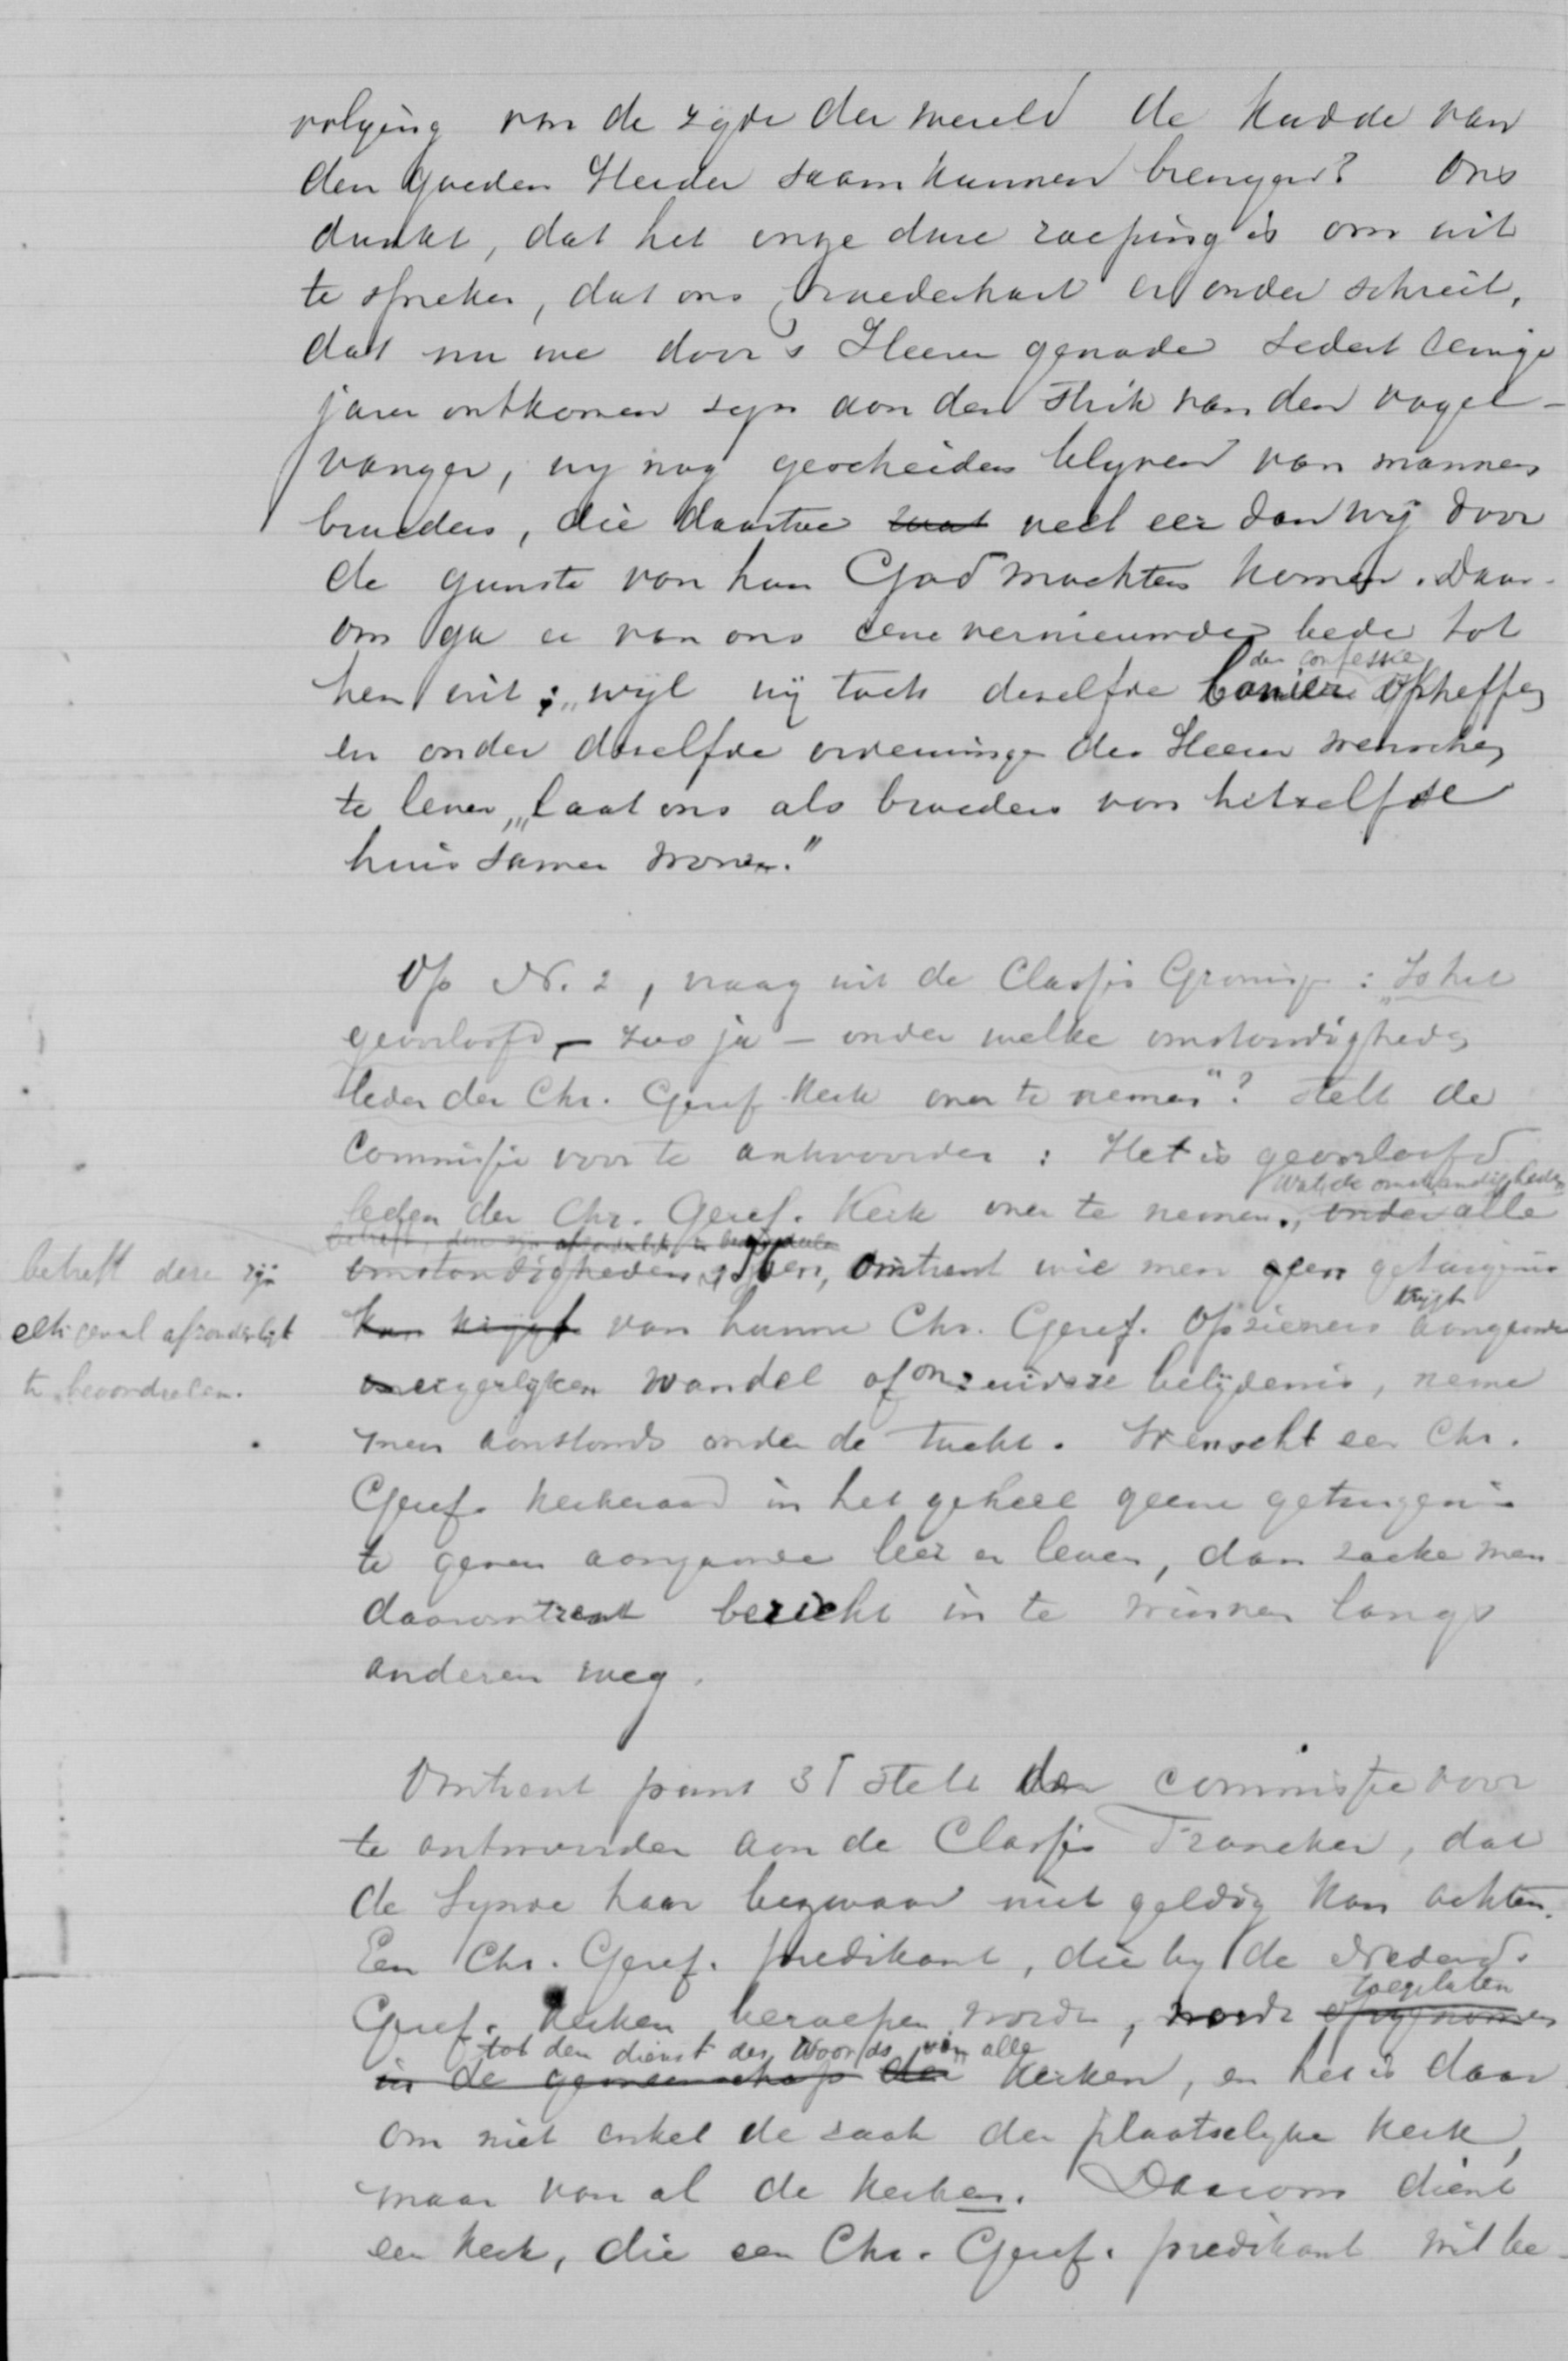 volging van de zijde der wereld de kudde van
den goeden Herder saam kunnen brengen? Ons
dunkt, dat het onze dure roeping is om uit
te spreken, dat ons broederhart er onder schreit,
dat nu we door 's Heeren genade sedert eenige
jaren ontkomen zyn aan den strik van den vogel-
vanger, wy nog gescheiden blyven van mannen
broeders, die daartoe veel eer dan wij door
de gunste van hun God mochten komen. Daar-
om ga er van ons eene vernieuwde bede tot
der confessie
hen uit: „wijl wij toch dezelfde banier opheffen
en onder dezelfde ordeninge des Heeren wenschen
te leven, „laat ons als broeders van hetzelfde
huis samen wonen."
Op N. 2, vraag uit de Classis Groningen: „Is het
geoorloofd, – zoo ja – onder welke omstandigheden
leden der Chr. Geref Kerk over te nemen"? stelt de
Commissie voor te antwoorden: Het is geoorloofd
Wat de omstandigheden
leden der Chr. Geref. Kerk over te nemen., onder alle
betreft, deze zijn afzonderlijk te beoordeelen
betreft deze zijn
elk geval afzonderlijk
te beoordeelen.
omstandigheden omtrent wie men geen getuigenis
krijgt
kan krijgt van hunne Chr. Geref. Opzieners aangaande
ergerlyken wandel of onzuivere belijdenis, neme
men aanstonds onder de tucht. Wenscht een Chr.
Geref. Kerkeraad in het geheel geene getuigenis
te geven aangaande leer en leven, dan zoeke men
daaromtrent bericht in te winnen langs
anderen weg.
Omtrent punt 3 stelt de commissie voor
te antwoorden aan de Classis Franeker, dat
de Synode haar bezwaar niet geldig kan achten.
Een Chr. Geref. predikant, die by de Nederd.
toegelaten
Geref. Kerken beroepen wordt, wordt opgenomen
tot den dienst des Woords van alle
in de gemeenschap der Kerken, en het is daar-
om niet enkel de zaak der plaatselyke Kerk,
maar van al de Kerken. Daarom dient
een Kerk, die een Chr. Geref. predikant wil be-